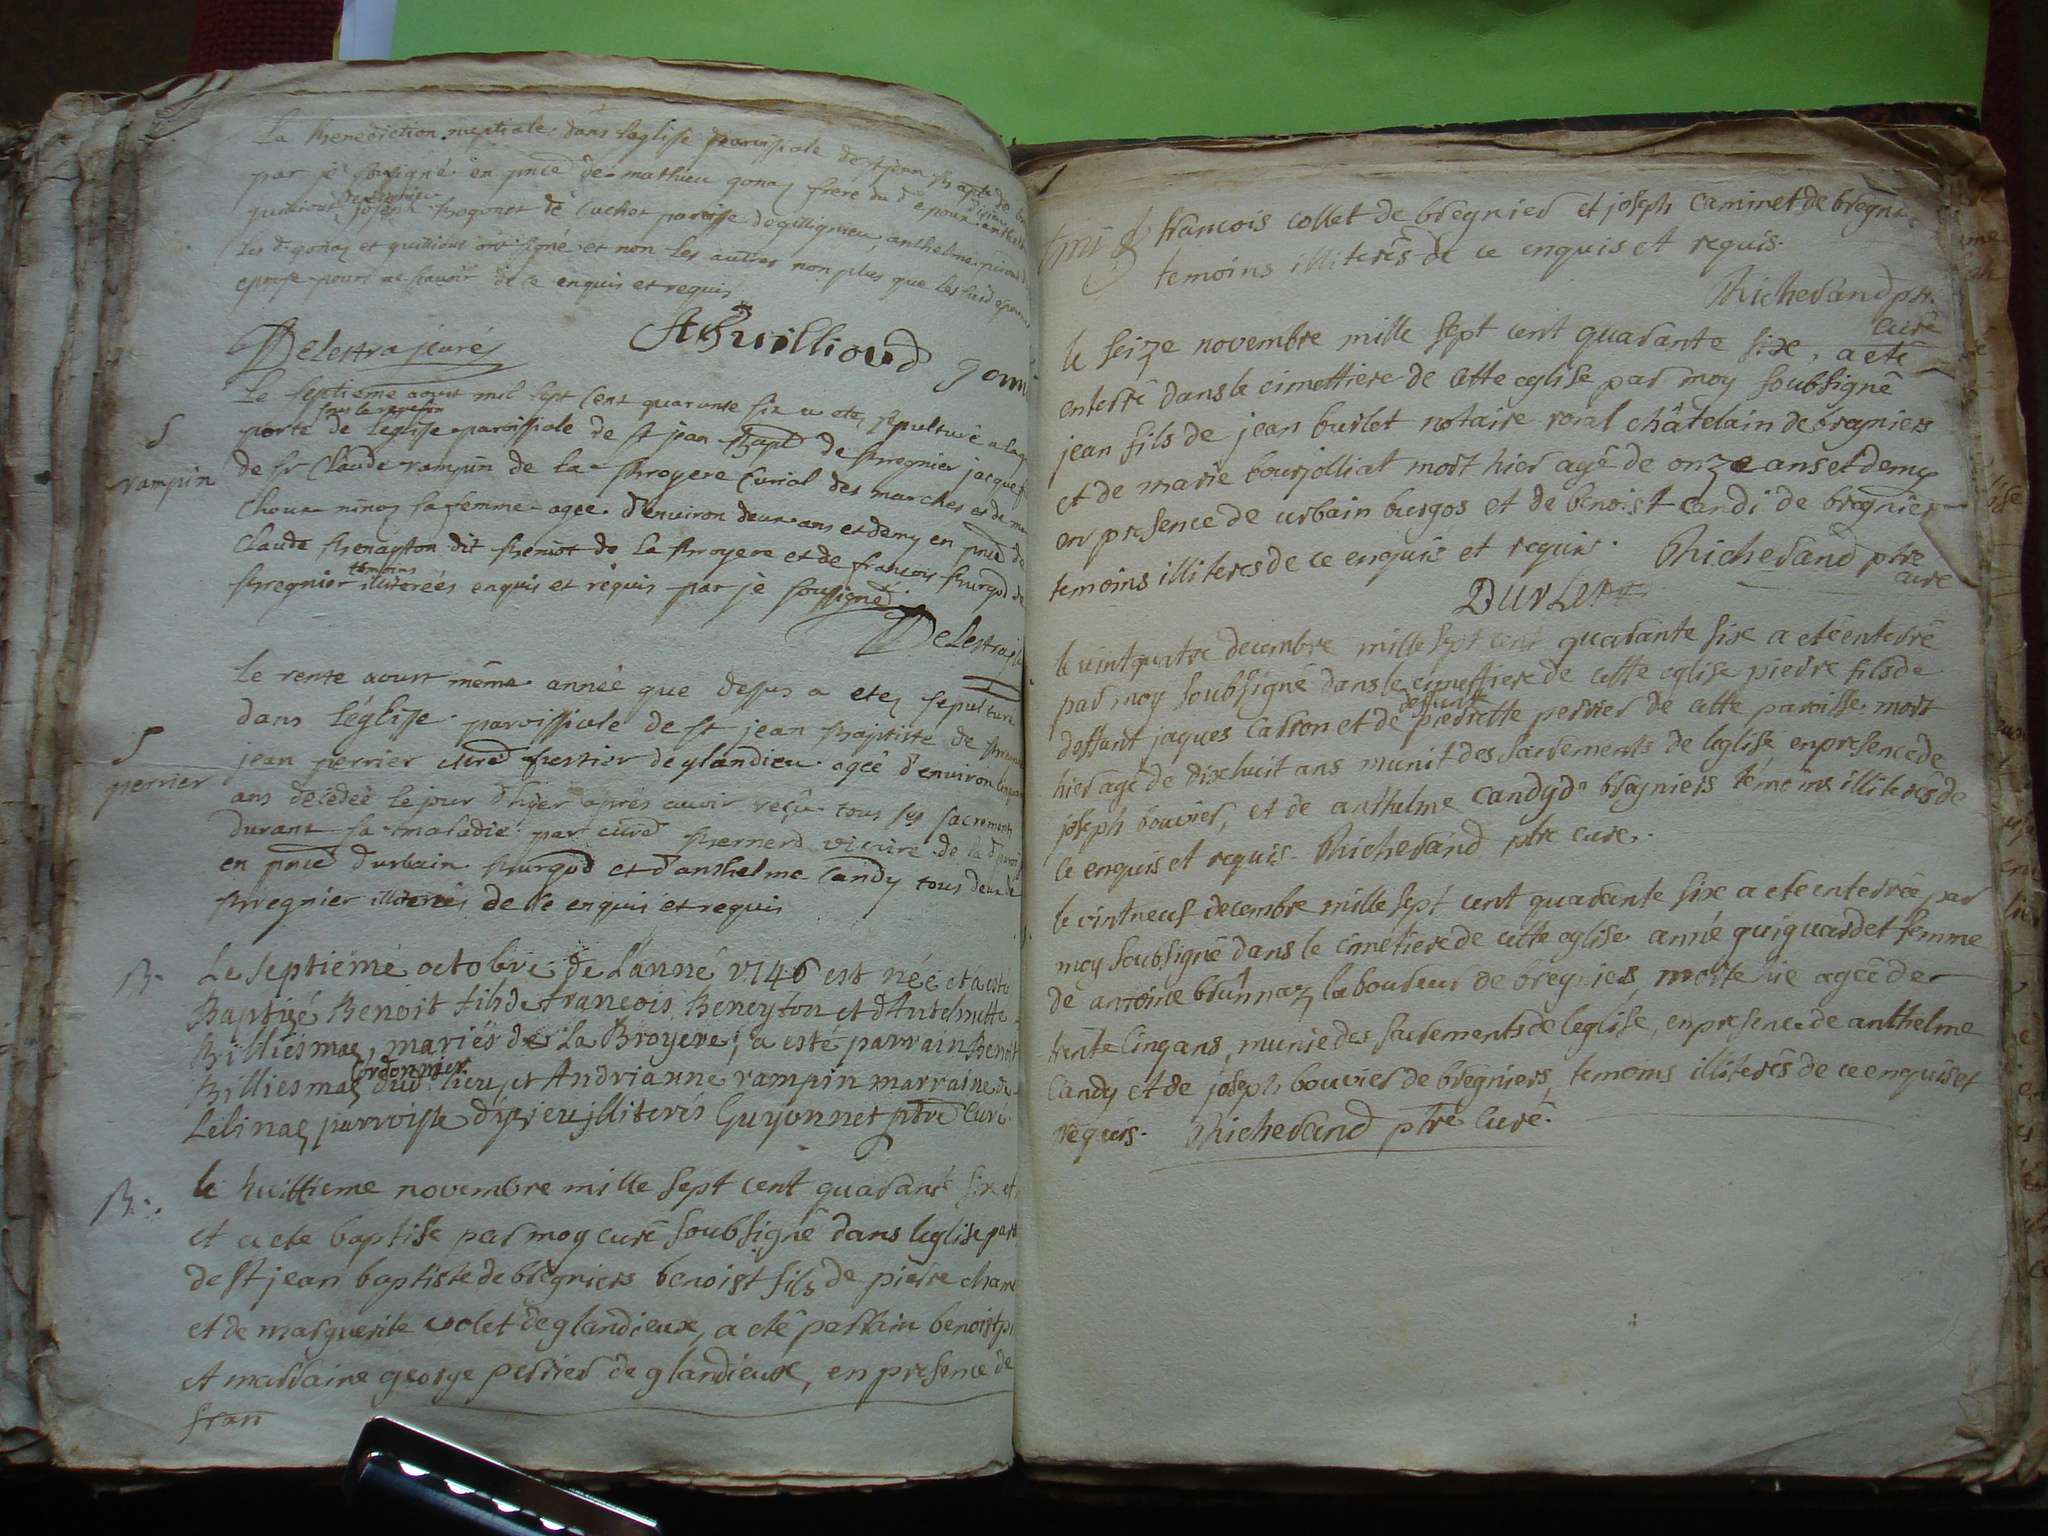 La Benediction nuptiale dans leglise paroissiale de st jean
par je soussigné en pnce de mathieu gonaz frere du d epoux
quilliout joseph Bogonet de Cuchet paroisse de gillignieu, anthelme
Les d. gonaz et quilliout ont signé et non les autres non plus que les susd
epouse pour ne scavoir de ce enquis et requis
Delestraz curéz Quillioud
Le septieme aoust mil sept cent quarante six a etez sepulturé a la
sous le
porte de leglise paroissiale de st jean Bapt de Bregnier jacques
S
rampin
de sr Claude rampin de la Broyere Curial des marches et de
ninoz sa femme agee d'environ deux ans et demy en pnce de
Claude Benayton dit Beniot de la Broyere et de francois Burgod de
temoins
Bregnier illiterées enquis et requis par je soussigné
Delestraz
le trente aoust même année que dessus a etez sepulturé
dans l'église paroissiale de st jean Baptiste de
S
perrier
jean perrier de glandieu agée d'environ
ans décédée le jour d'hyer aprés avoir reçû tous ses sacrements
durant sa maladie par Bernerd vicaire de la d
en pnce d'urbain Burgod et d'anthelme Candy tous deux de
Bregnier illiterés de ce enquis et requis
B. Le septiéme octobre de L'anné 1746 est née et a esté
Baptizé Benoit fils de francois Beneyton et d'Antelmette
Billiesmaz, mariés de La Broyere; a esté parrain Benoit
Cordonnier
Billiesmaz dud lieu, et Andrianne rampin marraine de
Lelinaz parroisse d'izieu jlliterés Guyonnet ptre Curé
B. le huittieme novembre mille sept cent quarant six
et a ete baptise par moy curé soubsigné dans leglise
de st jean baptiste de bregniers benoist fils de pierre
et de marguerite volet de glandieux, a eté parrain benoist
et marraine george perrier de glandieux, en presence de
fran
francois collet de bregnier et joseph caminet de
temoins illiterés de ce enquis et requis.
Richerand ptr.
curé
le seize novembre mille sept cent quarante six, a eté
enterré dans le cimettiere de cette eglise par moy soubsigné
jean fils de jean burlet notaire roial châtelain de bregniers
et de marie bourjolliat mort hier agé de onze ans et demy
en presence de urbain burgos et de benoist candi de bregniers
temoins illiteres de ce enquis et requis. Richerand ptre
cure
Burlet
le vint quatre decembre mille sept cent quarante six a eté enterré
par moy soubsigné dans le cimettiere de cette eglise pierre fils de
deffunte
deffunt jaques carron et de pierrette perrier de cette paroisse mort
hier agé de dixhuit ans munit des sacrements de leglise en presence de
joseph bouvier, et de anthelme candy de bregniers témoins illiterés de
ce enquis et requis. Richerand ptre curé.
le vint neuf decembre mille sept cent quarante six a eté enterrée par
moy soubsigné dans le cimetiere de cette eglise anné guiguardet femme
de antoine brunnaz laboureur de bregniers, morte hie agée de
trente cinq ans, munie des sacrements de leglise, en presence de anthelme
Candy et de joseph bouvier de bregniers, temoins illiterés de ce enquis et
requis. Richerand ptre curé.